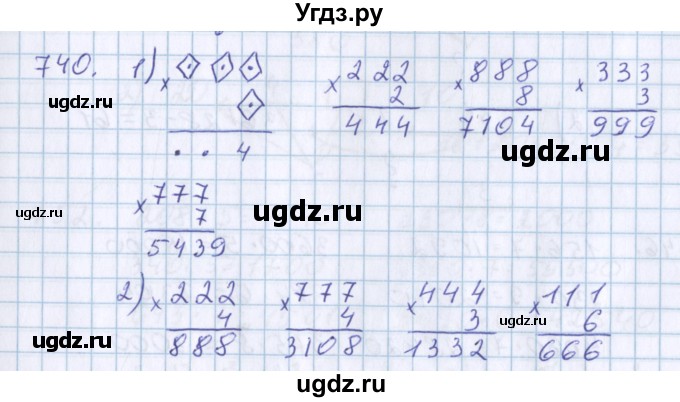 Угдз.ру
740. 1) × ◇ ◇ ◇ × 222 × 888 × 333
◇ 2 8 3
. . 4 444 7104 999
× 777
7
5439
2) × 222 × 777 × 444 × 111
4 4 3 6
888 3108 1332 666
ugdz.ru
ugdz.ru
ugdz.ru
ugdz.ru
ugdz.ru
ugdz.ru
ugdz.ru
ugdz.ru
ugdz.ru